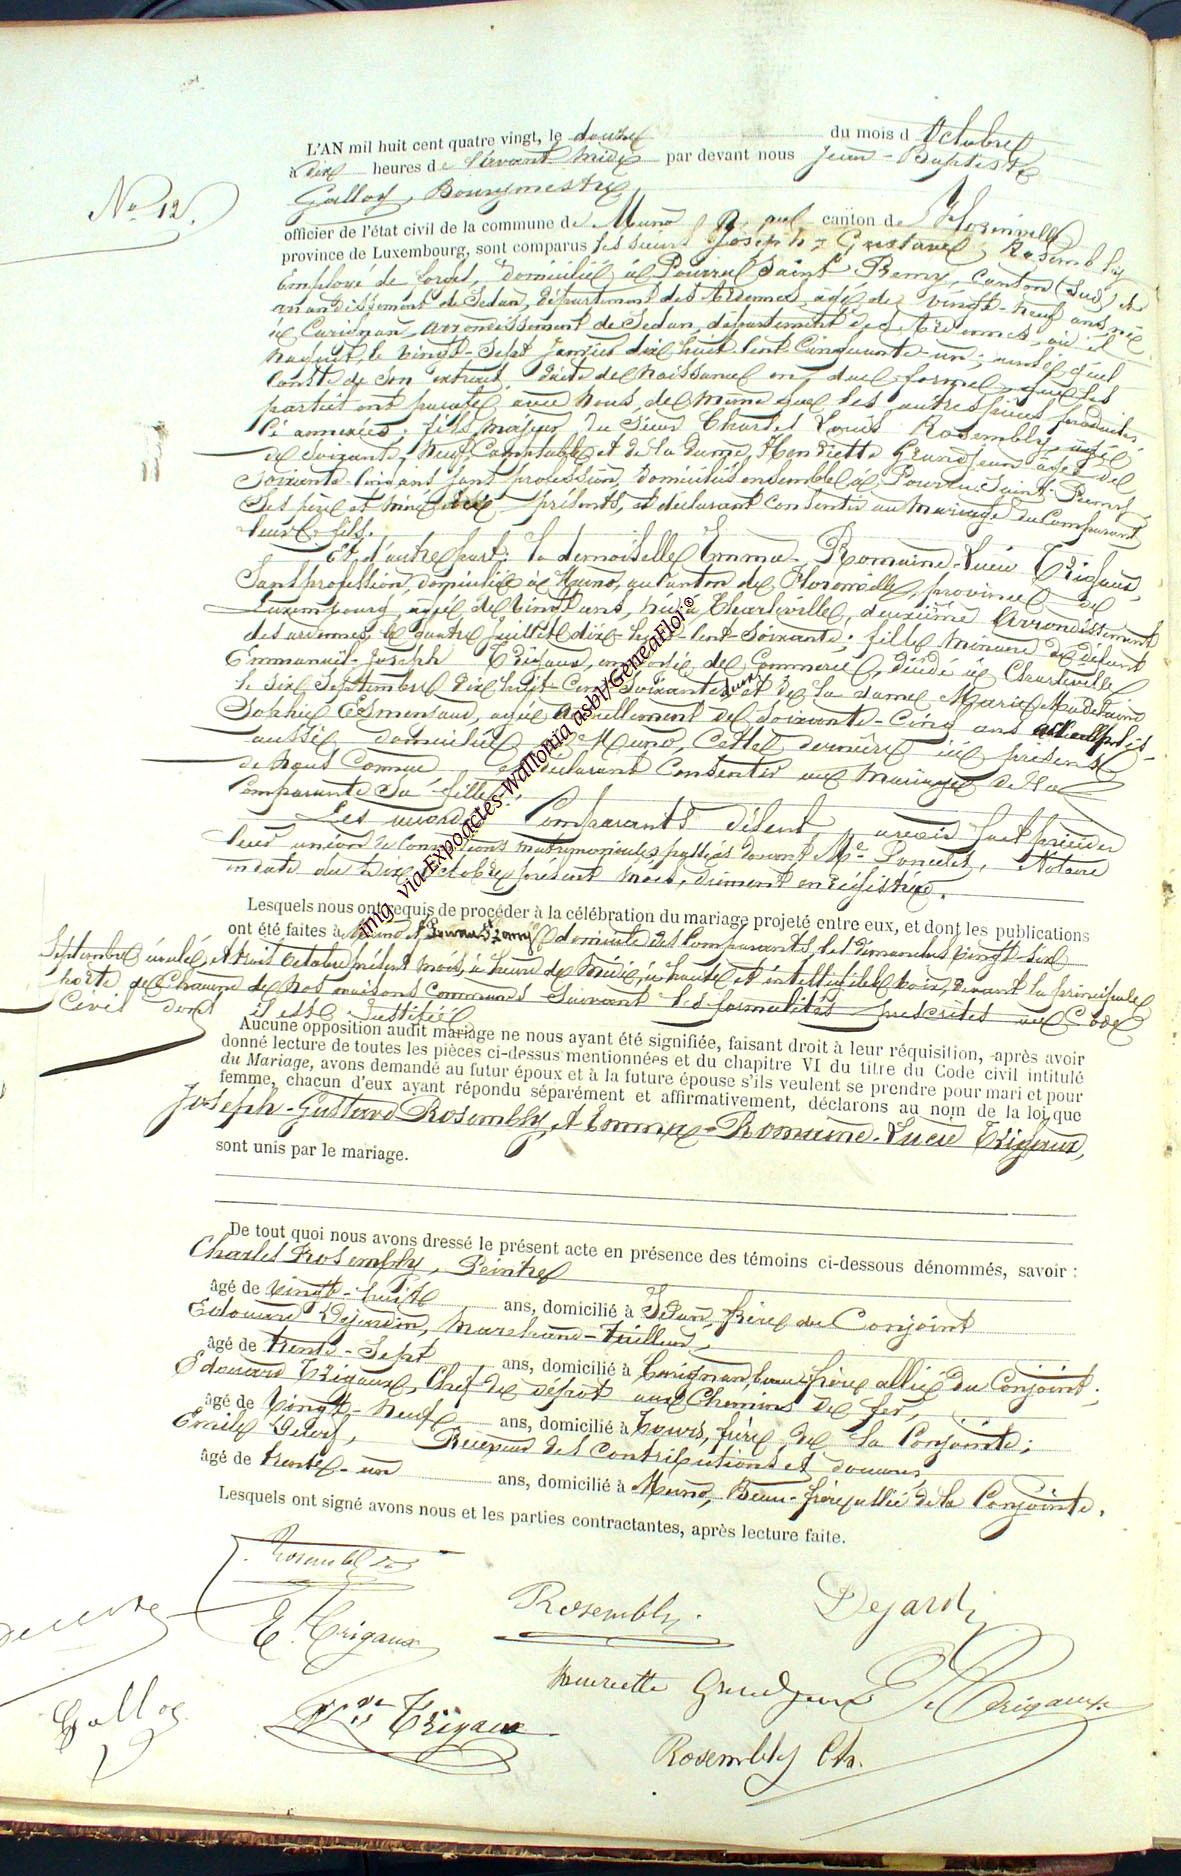 L'AN mil huit cent quatre vingt, le douze du mois d'Octobre
à dix heures de l'avant midi par devant nous Jean-Baptiste
No 12.
Galloy, Bourgmestre,
officier de l'état civil de la commune de Muno canton de Florenville
province de Luxembourg, sont comparus les sieurs Joseph-Gustave Rosembly
Employé de forges, domicilié à Pourru Saint Remy, Canton (Sud) et
arrondissement de Sedan, département des Ardennes, âgé de vingt-neuf ans, né
à Carignan, arrondissement de Sedan, département des Ardennes, où il
naquit le vingt-sept Janvier dix huit cent cinquante-un; ainsi que
conste de son extrait d'acte de naissance en due forme que les
parties ont paraphé avec nous, de même que les autres pièces produites
ci annexées. fils majeur du sieur Charles Louis Rosembly, âgé
de soixante-neuf Comptable et de la dame Henriette Grandjean âgée de
soixante-cinq ans sans profession, domiciliés ensemble à Pourru-Saint-Remy
ses père et mère ici présents, et déclarant consentir au mariage du Comparant
leur fils.
Et d'autre part: la demoiselle Emma-Romaine-Lucie Trigaux,
Sans profession, domiciliée à Muno, au canton de Florenville, province de
Luxembourg, âgée de vingt ans, née à Charleville, deuxième arrondissement
des ardennes, le quatre Juillet dix-huit-cent-soixante; fille mineure de défunt
Emmanuel-Joseph Trigaux, employé de Commerce, décédé à Charleville
le six Septembre dix huit-cent soixante et de la dame Marie Madelaine
Sophie Esmensaud, âgée actuellement de soixante-cinq ans
aussi domiciliée à Muno, cette dernière ici présente
de nous Connue et déclarant Consentir au mariage de la
Comparante sa fille.
Les Comparants disent avoir fait précéder
leur union de Conventions matrimoniales passées devant Me Poncelet, Notaire
en date du dix octobre présent mois, dûment enregistrée.
Lesquels nous ont requis de procéder à la célébration du mariage projeté entre eux, et dont les publications
ont été faites à Muno et Pourru St Remy domicile des Comparants, les dimanches vingt-six
Septembre écoulé, et trois octobre présent mois, à heure de midi, à haute et intelligible voix, devant la principale
porte de chacune de nos maisons communes suivant les formalités prescrites au Code
Civil dont il est justifié
Aucune opposition audit mariage ne nous ayant été signifiée, faisant droit à leur réquisition, après avoir
donné lecture de toutes les pièces ci-dessus mentionnées et du chapitre VI du titre du Code civil intitulé
du Mariage, avons demandé au futur époux et à la future épouse s'ils veulent se prendre pour mari et pour
femme, chacun d'eux ayant répondu séparément et affirmativement, déclarons au nom de la loi, que
Joseph-Gustave Rosembly et Emma-Romaine-Lucie Trigaux,
sont unis par le mariage.
De tout quoi nous avons dressé le présent acte en présence des témoins ci-dessous dénommés, savoir :
Charles Rosembly, Peintre
âgé de vingt-huit ans, domicilié à Sedan, frère du Conjoint
Edouard Dejardin, Marchand-Tailleur,
âgé de trente-sept ans, domicilié à Carignan, beau-frère allié du Conjoint,
Edouard Trigaux, Chef de dépôt aux Chemins de fer,
âgé de Vingt-neuf ans, domicilié à Tours, frère de la Conjointe;
Emile Receveur des contributions et douanes,
âgé de trente-un ans, domicilié à Muno, Beau-frère allié de la Conjointe.
Lesquels ont signé avons nous et les parties contractantes, après lecture faite.
Rosembly
Rosembly.
Dejardin
E. Trigaux
Henriette Grandjean
E. Trigaux
Galloy
Vve Trigaux
Rosembly Ch.
img via Expoactes-Wallonia asbl/GeneaFlo!®